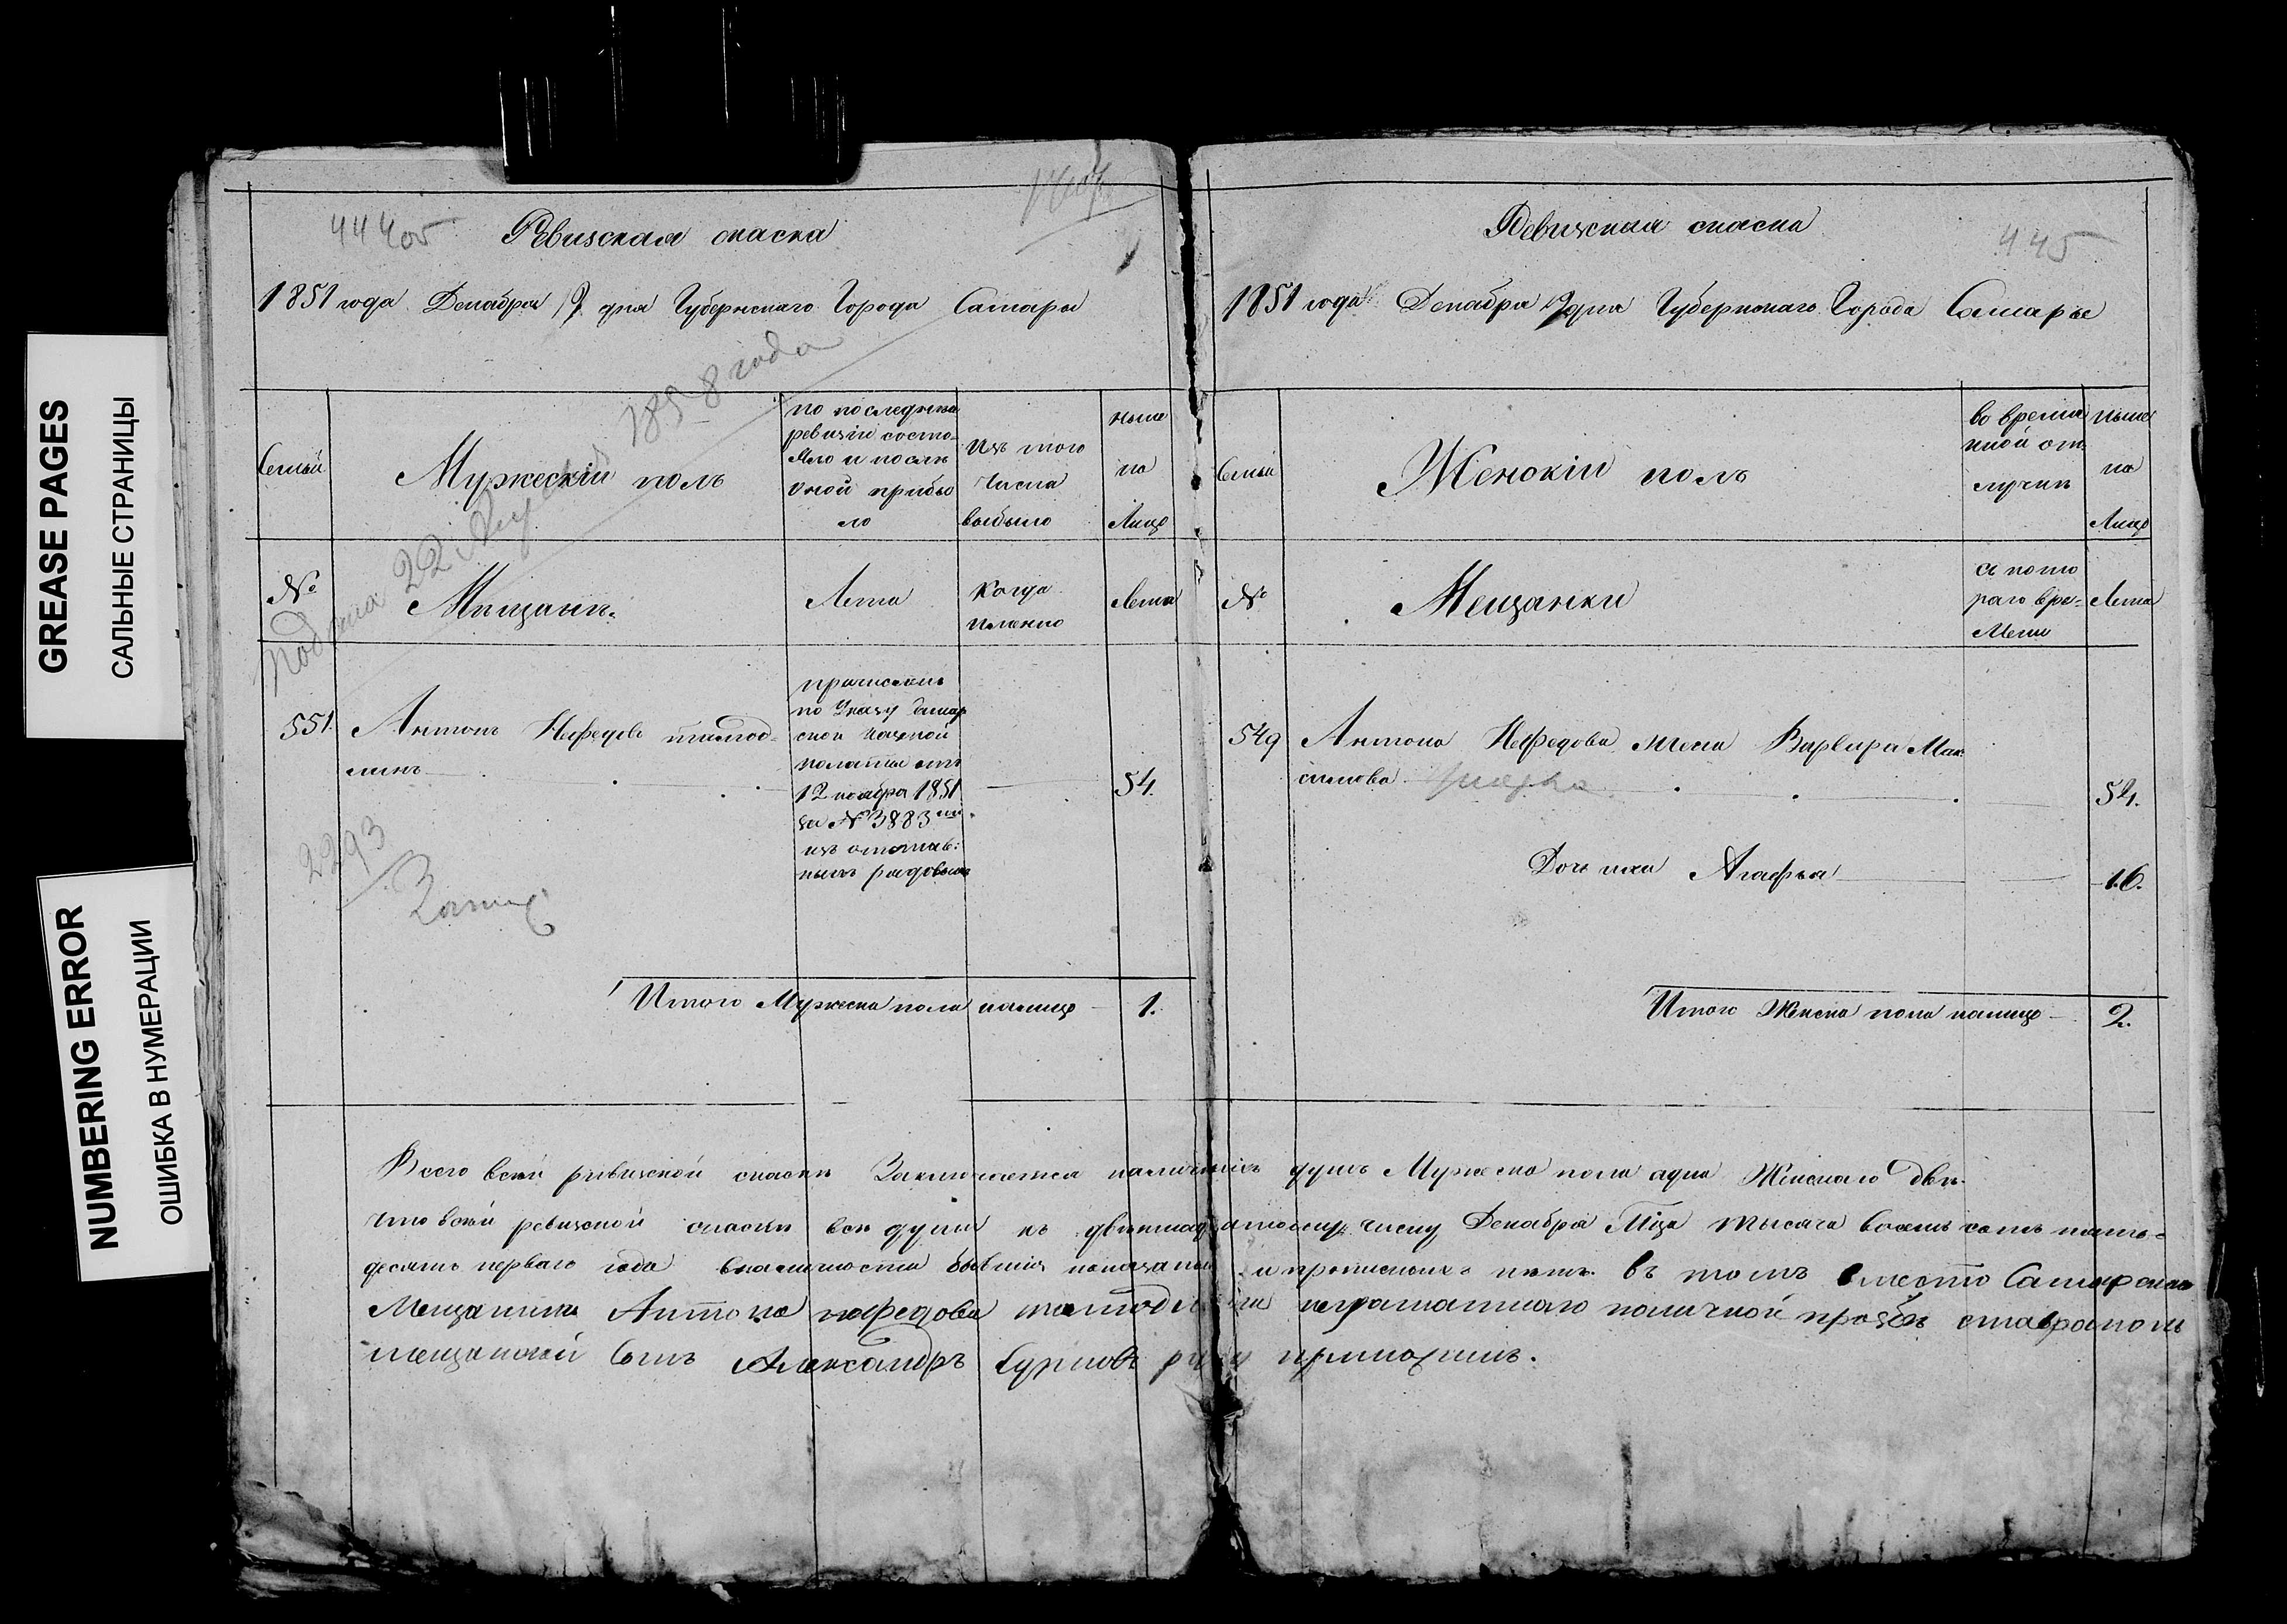 GREASE PAGES
САЛЬНЫЕ СТРАНИЦЫ
NUMBERING ERROR
ОШИБКА В НУМЕРАЦИИ
444об
Ревизская скаска
1851 года Декабря 12 дня Губернскаго Города Самары
Подана 22 Августа 1858 года
Семьи
Мужескій полъ
по последней
ревизіи состо-
яло и после
оной прибы
ло
Изъ того
числа
выбыло
ныне
на
Лицо
№
Мещане
Лета
Когда
имянно
Лета
551.
Антонъ Нефедовъ
причисленъ
по Указу Самар
ской Казеной
палаты отъ
12 ноября 1851
за № 3883
изъ отстав:
ныхъ рядовыхъ
54.
2293
Итого Мужеска пола налицо 1.
Ревизская скаска
445
1851 года Декабря 12 дня Губернскаго Города Самары
Семьи
Женскій полъ
во време
нной от
лучке
ныне
на
Лицо
№
Мещанки
с кото
раго вре-
мени
Лета
549
Антона Нефедова жена Варвара Мак
симова
54.
Дочь ихъ Агафья 16.
Итого Женска пола налицо 2.
Всего всей ревизской скаске Заключается наличныхъ душъ Мужеска пола одна Женскаго две.
Что всей ревизской скаске все души къ двенадцатому числу Декабря Мца тысяча восемь сотъ пять-
десятъ перваго года вналичности бывшія показаны и прописныхъ нетъ. въ томъ вместо Самарскаго
Мещанина Антона нефедова неграматнаго поличной прозбе ставрополь
мещанскій Сынъ Александръ руку приложилъ.